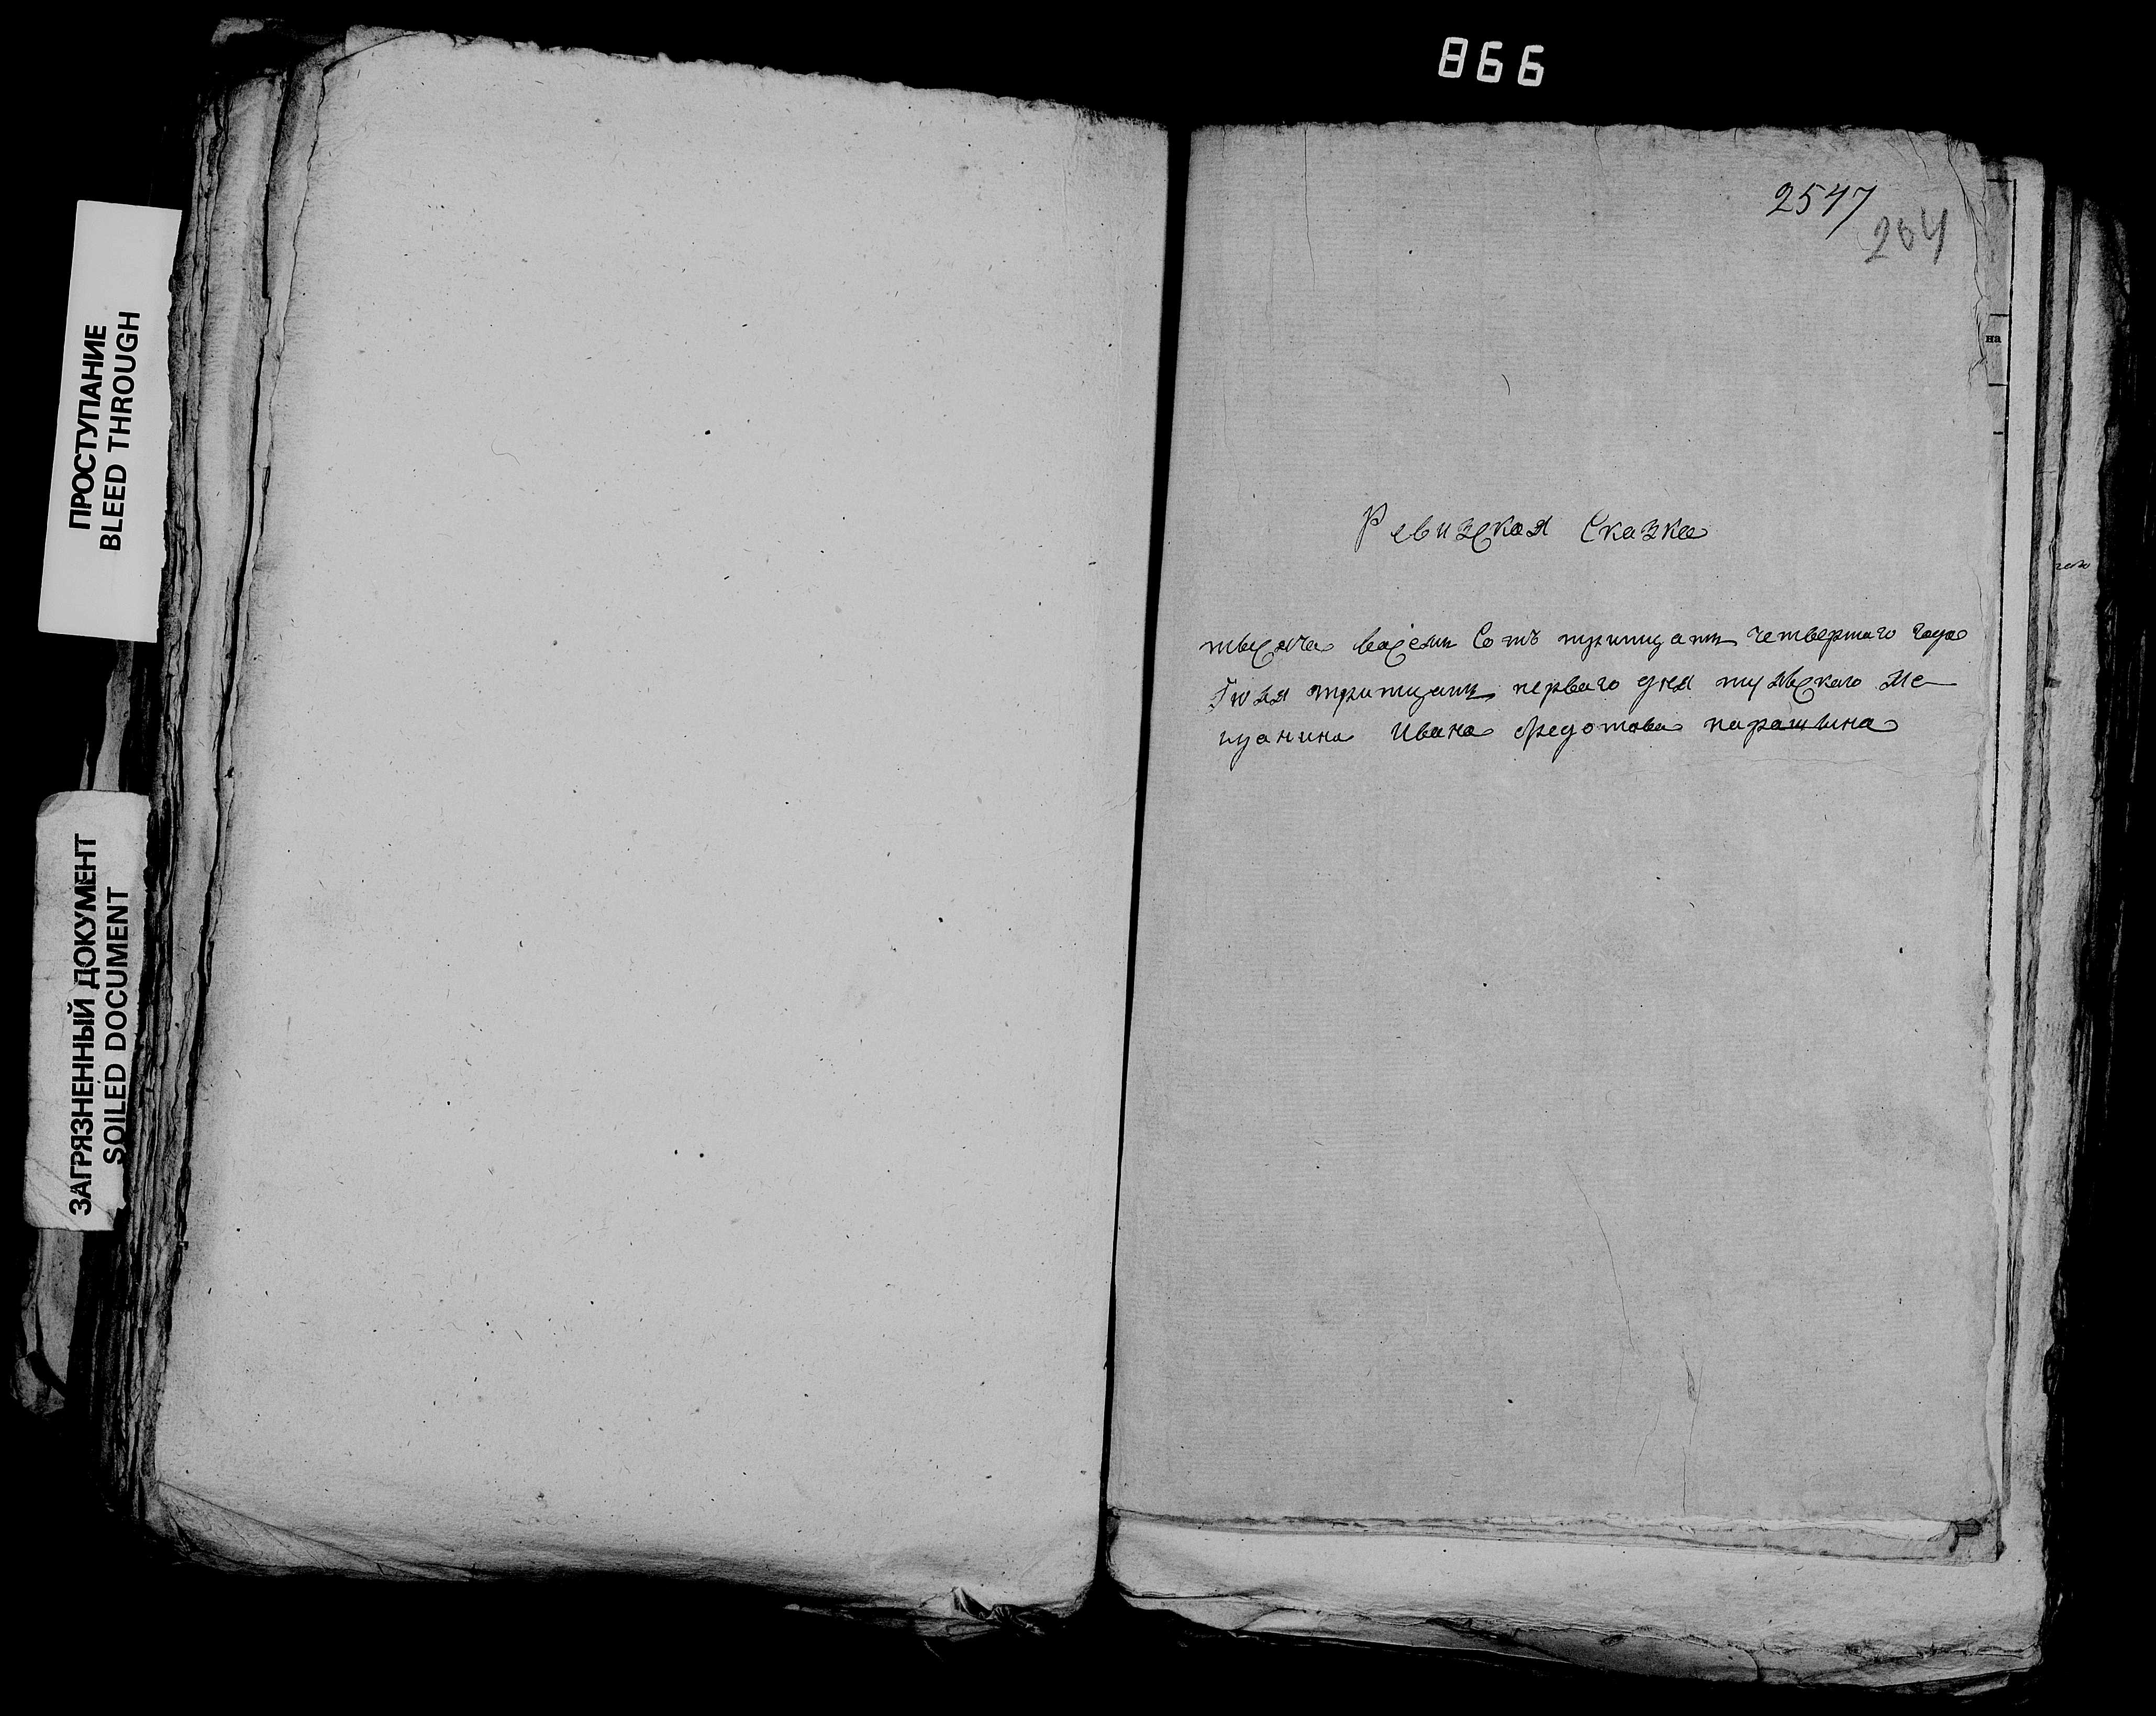 866
2547
204
ПРОСТУПАНИЕ
BLEED THROUGH
ЗАГРЯЗНЕННЫЙ ДОКУМЕНТ
SOILED DOCUMENT
на
Ревизская Сказка
тысяча восемь Сотъ тритцать четвертаго года
Июля тритцать перваго дня тульскаго Ме-
щанина Ивана федотова парашина